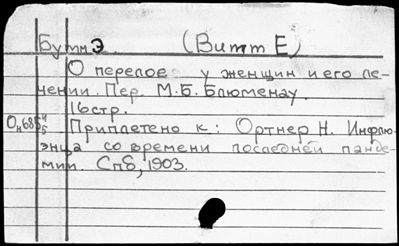 Бутт Э. (Витт Е)
О перелое у женщин и его ле-
чении. Пер. М.Б. Блюменау.
16стр.
Приплетено к: Ортнер Н. Инфлю-
энца со времени последней панде-
мии. Спб, 1903.